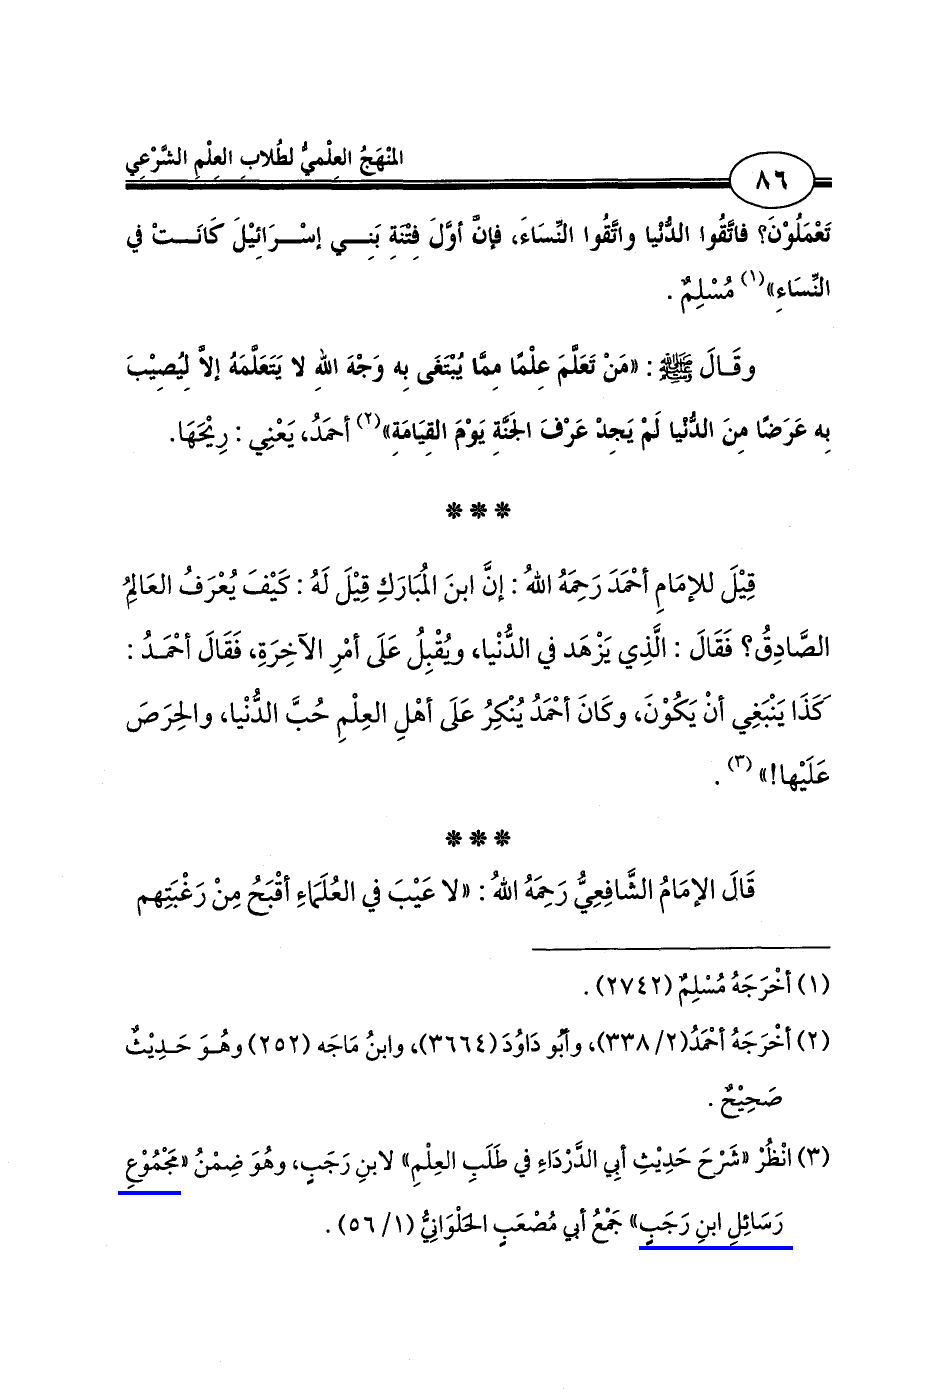 المَنْهَجُ العِلْميُّ لطُلابِ العِلْمِ الشَّرْعِي
٨٦
تَعْمَلُوْنَ؟ فاتَّقُوا الدُّنْيا واتَّقُوا النِّسَاءَ، فإنَّ أوَّلَ فِتْنَةِ بَنِـي إسْـرَائِيْلَ كَانَـتْ في
النِّسَاءِ»(١) مُسْلِمٌ .
وقَـالَ ﷺ : «مَنْ تَعَلَّمَ عِلْمًا ممَّا يُبْتَغَى به وَجْهَ اللهِ لا يَتَعَلَّمَهُ إلاَّ ليُصِيْبَ
به عَرَضًا مِنَ الدُّنْيا لَمْ يَجِدْ عَرْفَ الجَنَّةِ يَوْمَ القِيَامَةِ»(٢) أحمَدُ، يَعْنِي : رِيْحَهَا.
***
قِيْلَ للإمَامِ أحْمَدَ رَحِمَهُ اللهُ : إنَّ ابنَ المُبَارَكِ قِيْلَ لَهُ : كَيْفَ يُعْرَفُ العَالِمُ
الصَّادِقُ؟ فَقَالَ : الَّذِي يَزْهَد في الدُّنْيا، ويُقْبِلُ عَلَى أمْرِ الآخِرَةِ، فَقَالَ أحْمَـدُ :
كَذَا يَنْبَغِي أنْ يَكُوْنَ، وكَانَ أحْمَدُ يُنْكِرُ عَلَى أهْلِ العِلْمِ حُبَّ الدُّنْيا، والحِرَصَ
عَلَيْها!» (٣) .
***
قَالَ الإمَامُ الشَّافِعِيُّ رَحِمَهُ اللهُ : «لا عَيْبَ في العُلَمَاءِ أقْبَحُ مِنْ رَغْبَتِهم
(١) أخْرَجَهُ مُسْلِمٌ (٢٧٤٢) .
(٢) أخْرَجَهُ أحْمَدُ(٢/ ٣٣٨)، وأبُو دَاوُدَ (٣٦٦٤)، وابنُ مَاجَه (٢٥٢) وهُـوَ حَـدِيْثٌ
صَحِيْحٌ .
(٣) انْظُرْ «شَرْحَ حَدِيْثِ أبي الدَّرْدَاءِ في طَلَبِ العِلْمِ» لابنِ رَجَبٍ، وهُوَ ضِمْنُ «مَجْمُوْعِ
رَسَائِلِ ابنِ رَجَبٍ» جَمْعُ أبي مُصْعَبٍ الحَلْوَانِيُّ (١/ ٥٦) .